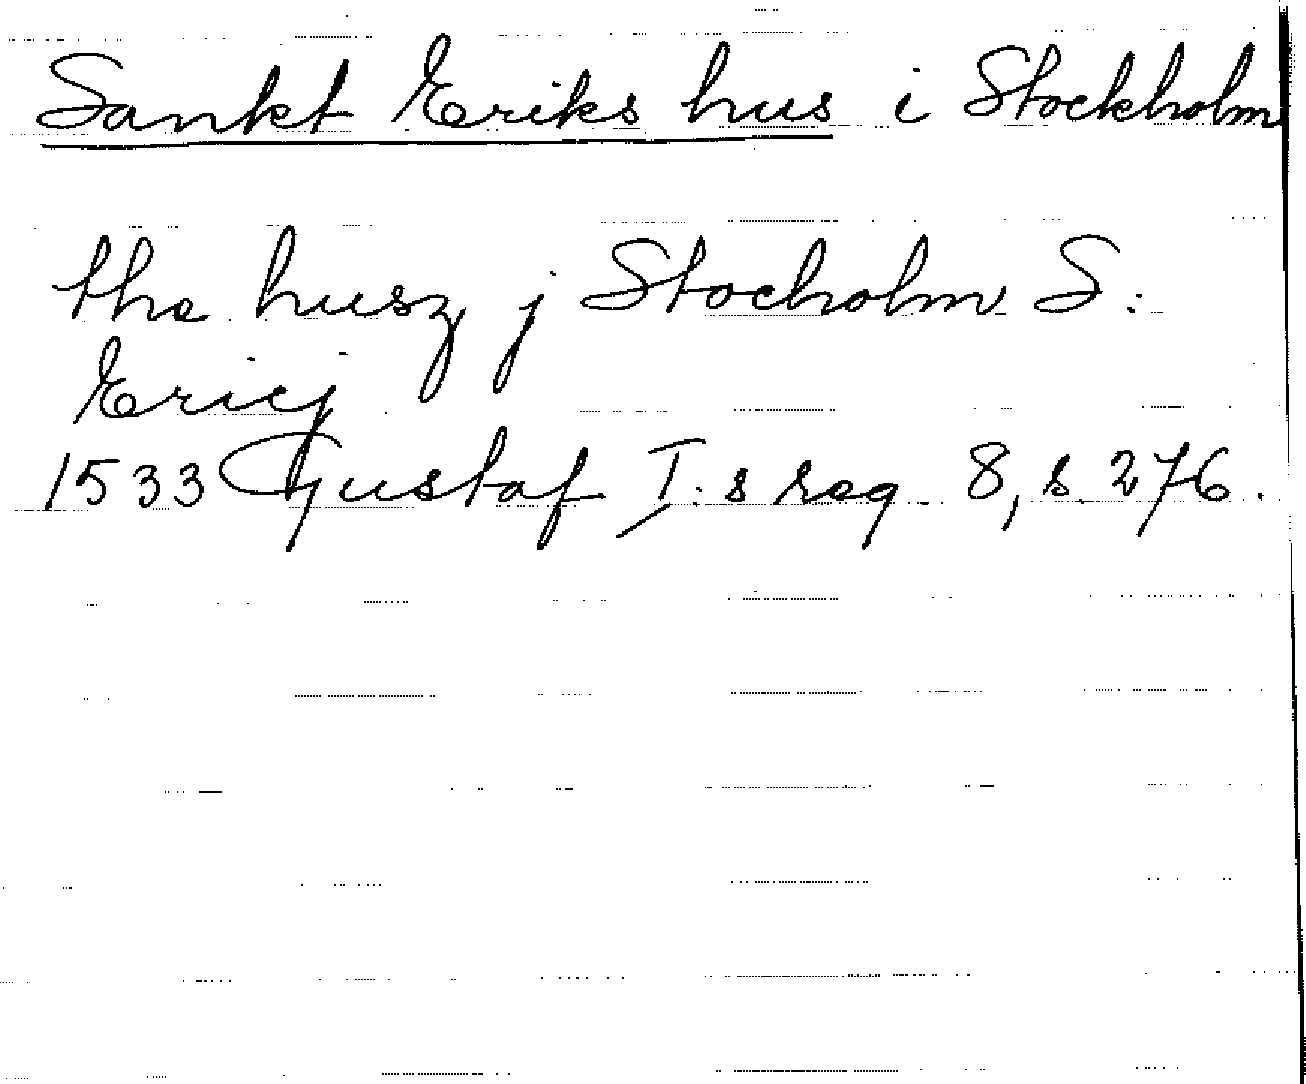 Sankt Eriks hus i Stockholm
the husz j Stocholm S:
Ericj
1533 Gustaf I:s reg 8, s. 276.